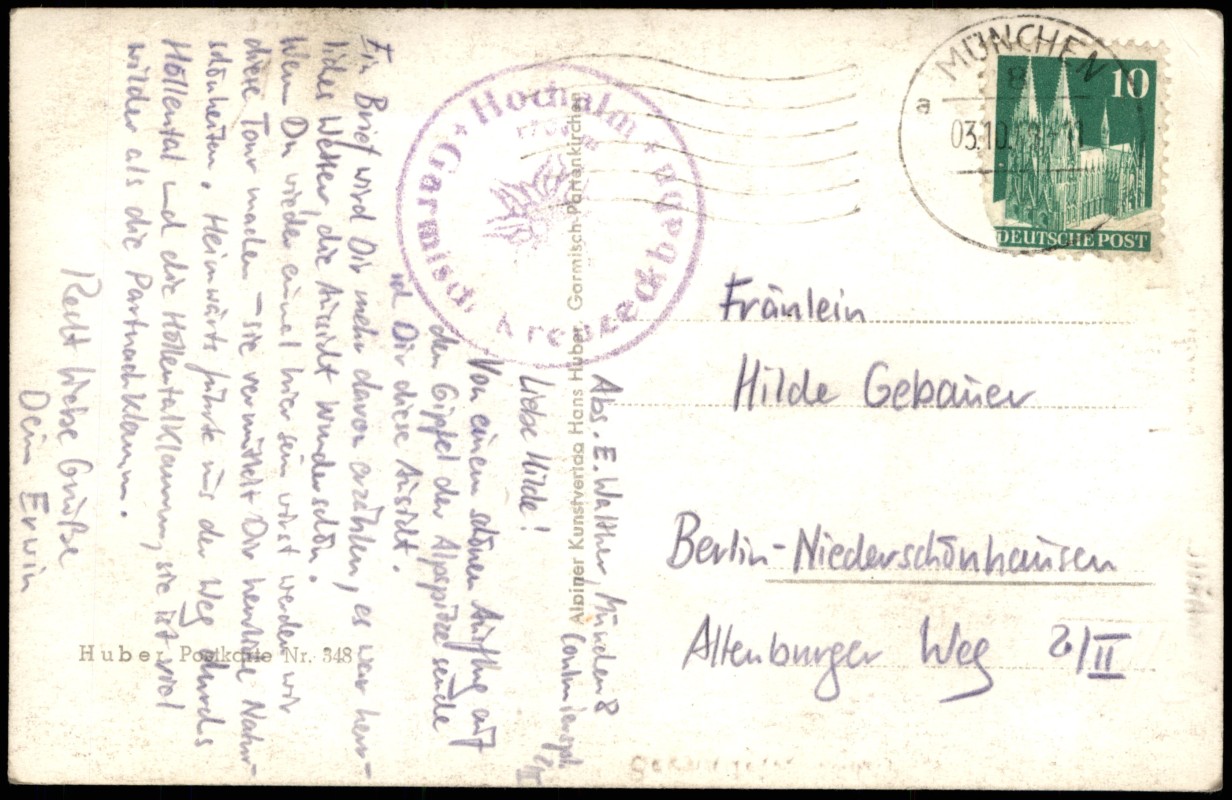 Abs. E. Walther, München 8
2/II
Liebe Hilde!
Von einem schönen Ausflug auf
den Gipfel der Alpspitze sende
ich Dir diese Ansicht.
Ein Brief wird Dir mehr davon erzählen, es war herr-
liches Wetter, die Aussicht wunderschön.
Wenn Du wieder einmal hier sein wirst werden wir
diese Tour machen – sie vermittelt Dir herrliche Natur-
schönheiten. Heimwärts führte uns der Weg durchs
Höllental und die Höllentalklamm, sie ist viel
wilder als die Partnachklamm.
Recht liebe Grüße
Dein Erwin
Huber Postkarte Nr. 348
Alpiner Kunstverlag Hans Huber, Garmisch-Partenkirchen
Hochalm
Garmisch Kreuzeckbahn
MÜNCHEN
8
a
03.10.
10
DEUTSCHE POST
Fräulein
Hilde Gebauer
Berlin-Niederschönhausen
Altenburger Weg 2/II